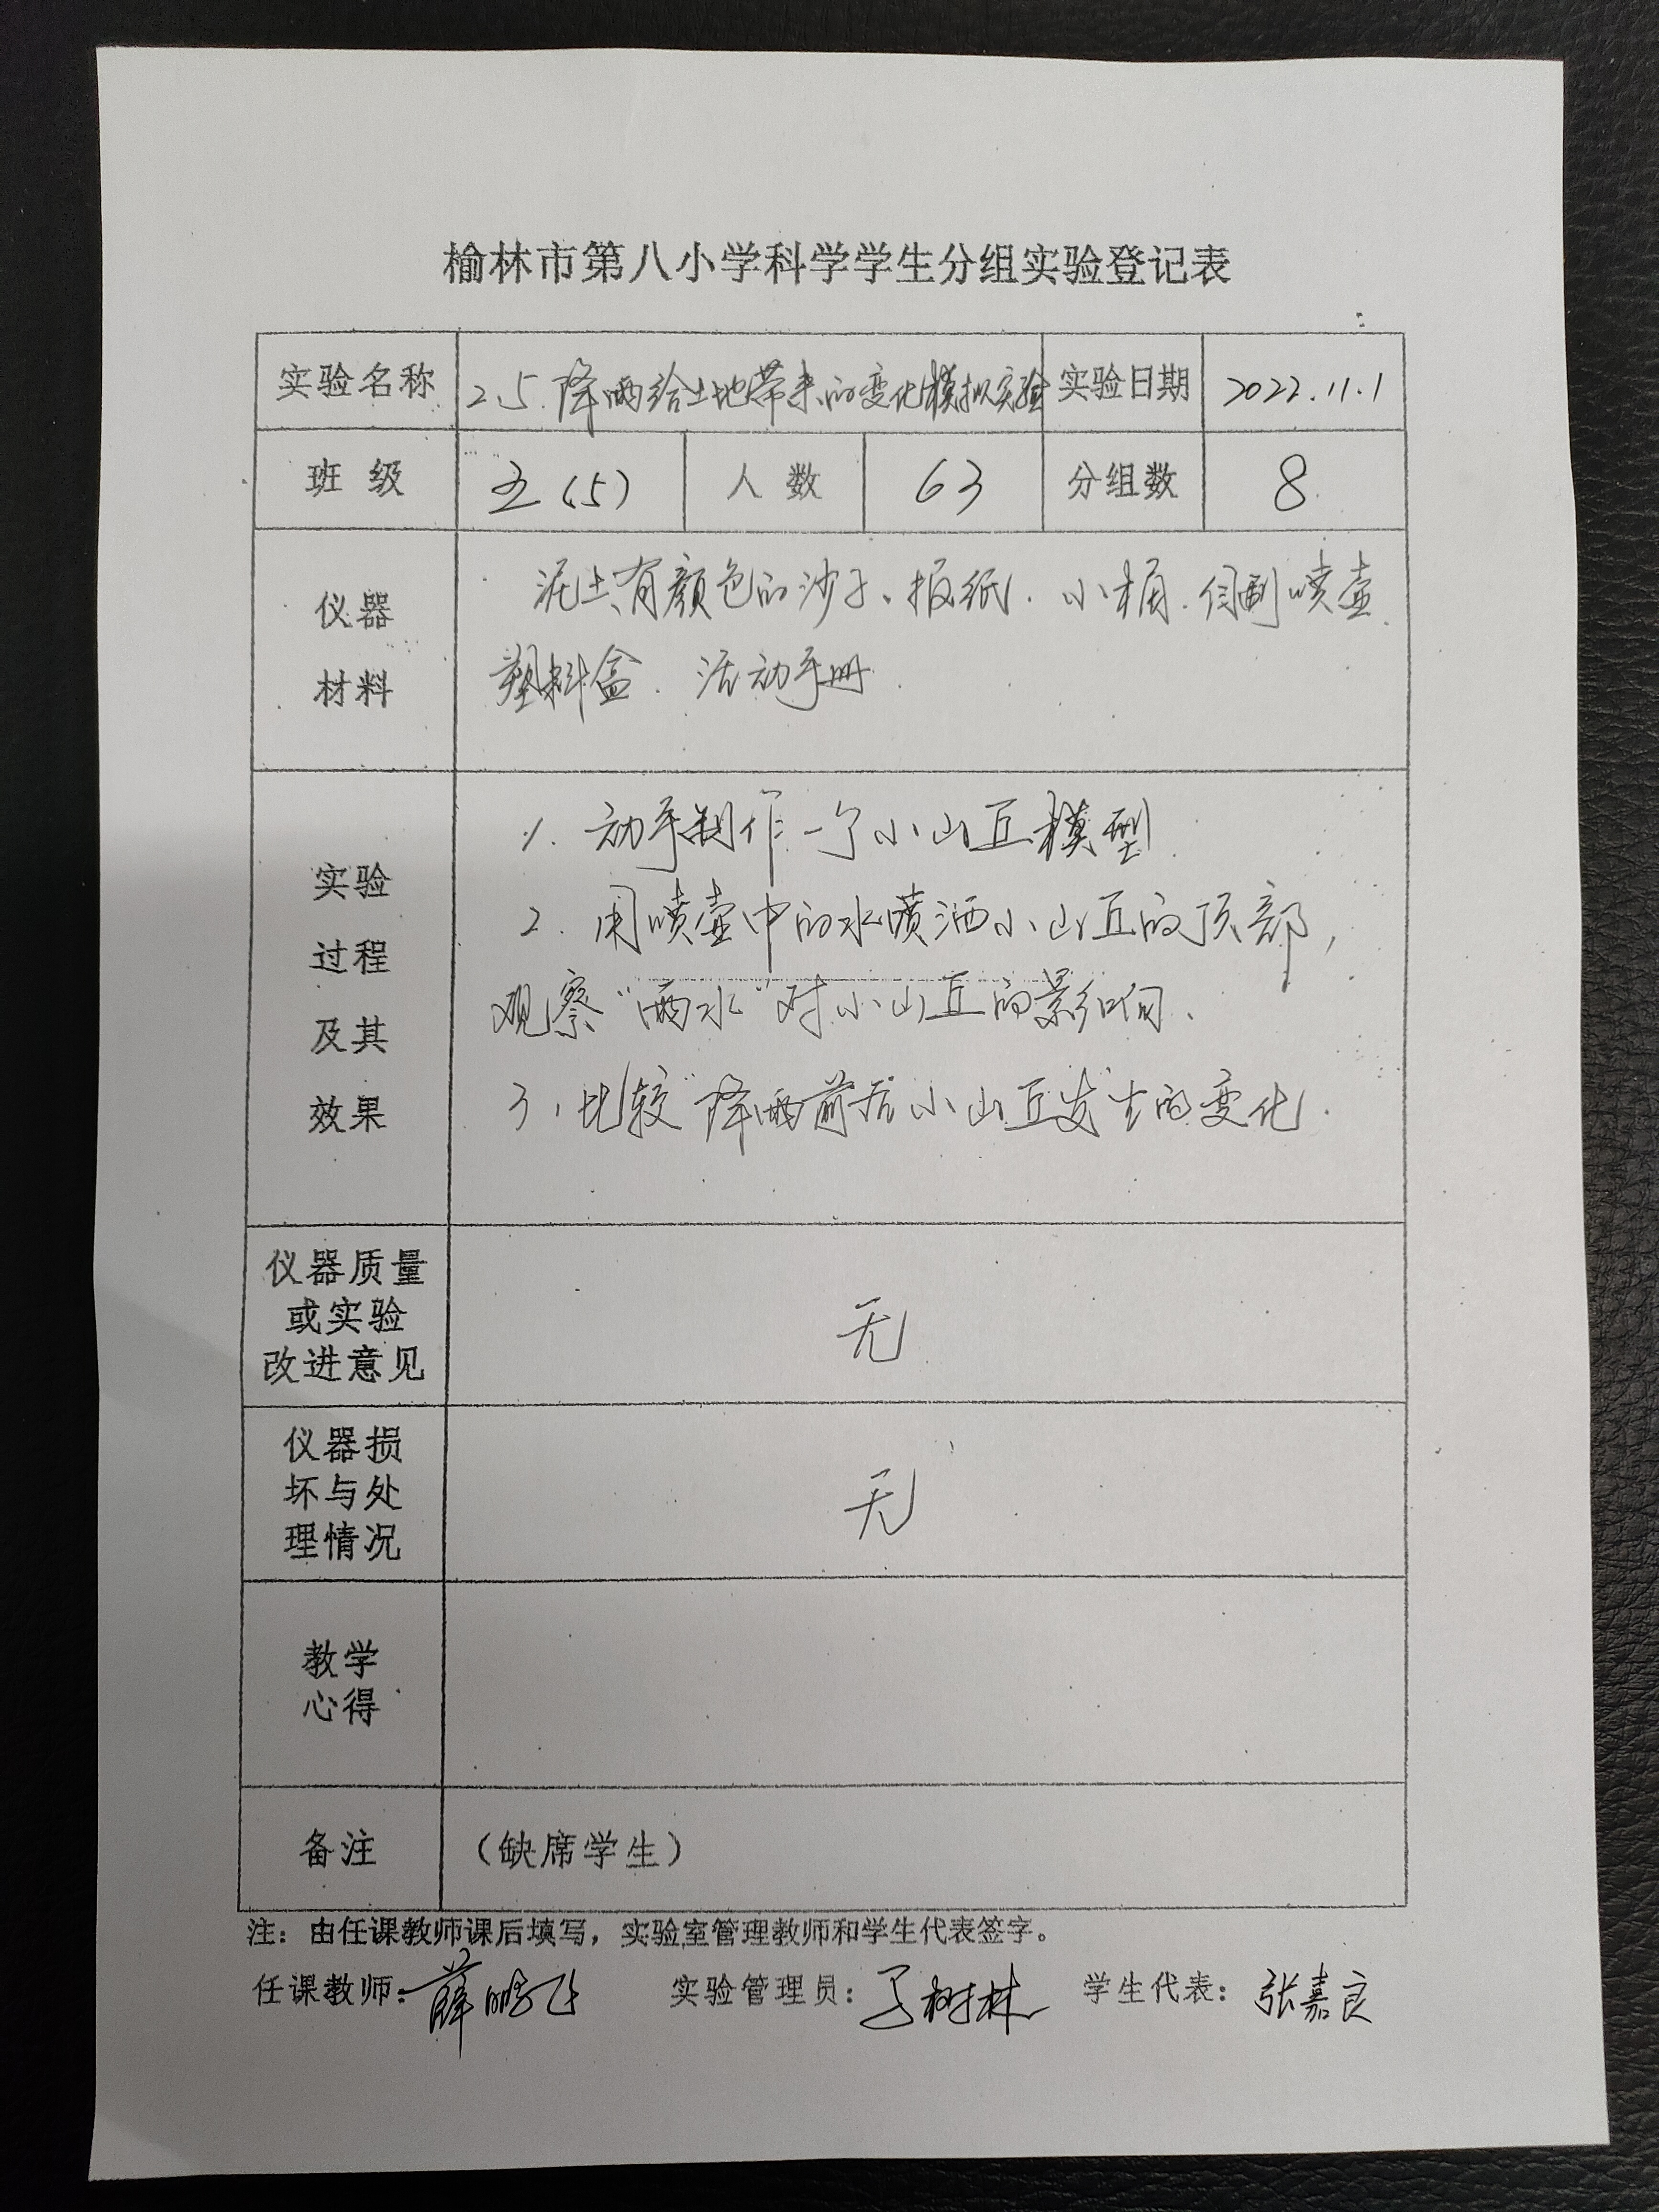 榆林市第八小学科学学生分组实验登记表
实验名称 2.5.降雨给土地带来的变化模拟实验 实验日期 2022.11.1
班 级 五(5) 人 数 63 分组数 8
仪器
材料
泥土、有颜色的沙子、报纸、小桶、自制喷壶、
塑料盒、活动手册.
实验
过程
及其
效果
1. 动手制作一个小山丘模型
2. 用喷壶中的水喷洒小山丘的顶部,
观察“雨水”对小山丘的影响、
3、比较“降雨”前后小山丘发生的变化.
仪器质量
或实验
改进意见
无
仪器损
坏与处
理情况
无
教学
心得
备注 （缺席学生）
注：由任课教师课后填写，实验室管理教师和学生代表签字。
任课教师：薛鹏飞 实验管理员： 树林 学生代表：张嘉良